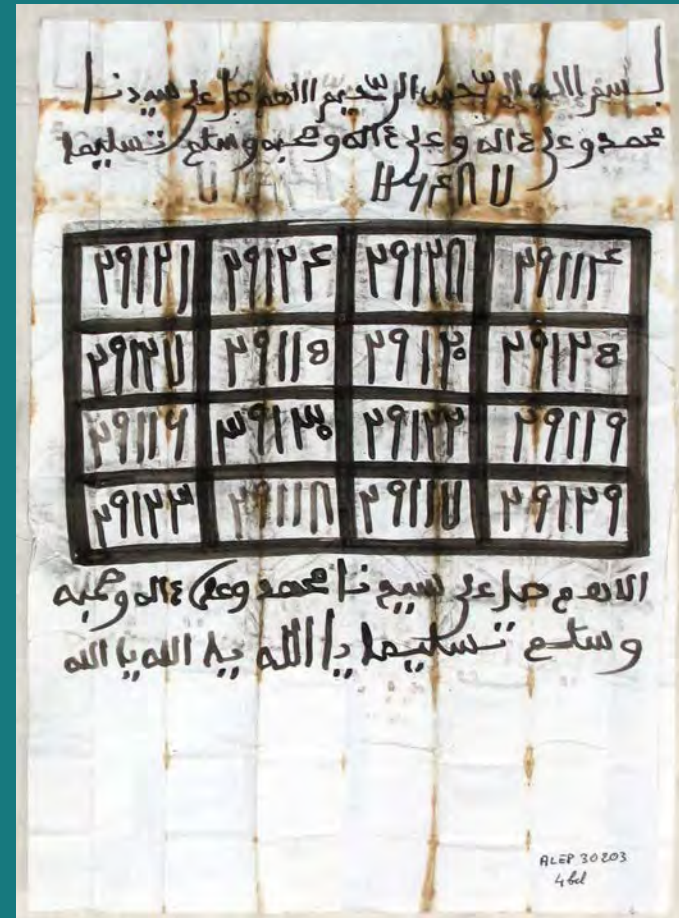 بسم الله الرحمن الرحيم اللهم صل على سيدنا
محمد وعلى ءاله وعلى ءاله وصحبه وسلم تسليما
١١٦٤٨٧
٢٩١٢١ ٢٩١٢٤ ٢٩١٢٨ ٢٩١١٤
٢٩١٢٧ ٢٩١١٥ ٢٩١٢٠ ٢٩١٢٥
٢٩١١٦ ٣٩١٣٠ ٢٩١٢٢ ٢٩١١٩
٢٩١٢٣ ٢٩١١٨ ٢٩١١٧ ٢٩١٢٩
اللهم صل على سيدنا محمد وعلى ءاله وصحبه
وسلم تسليما يا الله يا الله يا الله
ALEP 30203
4bd